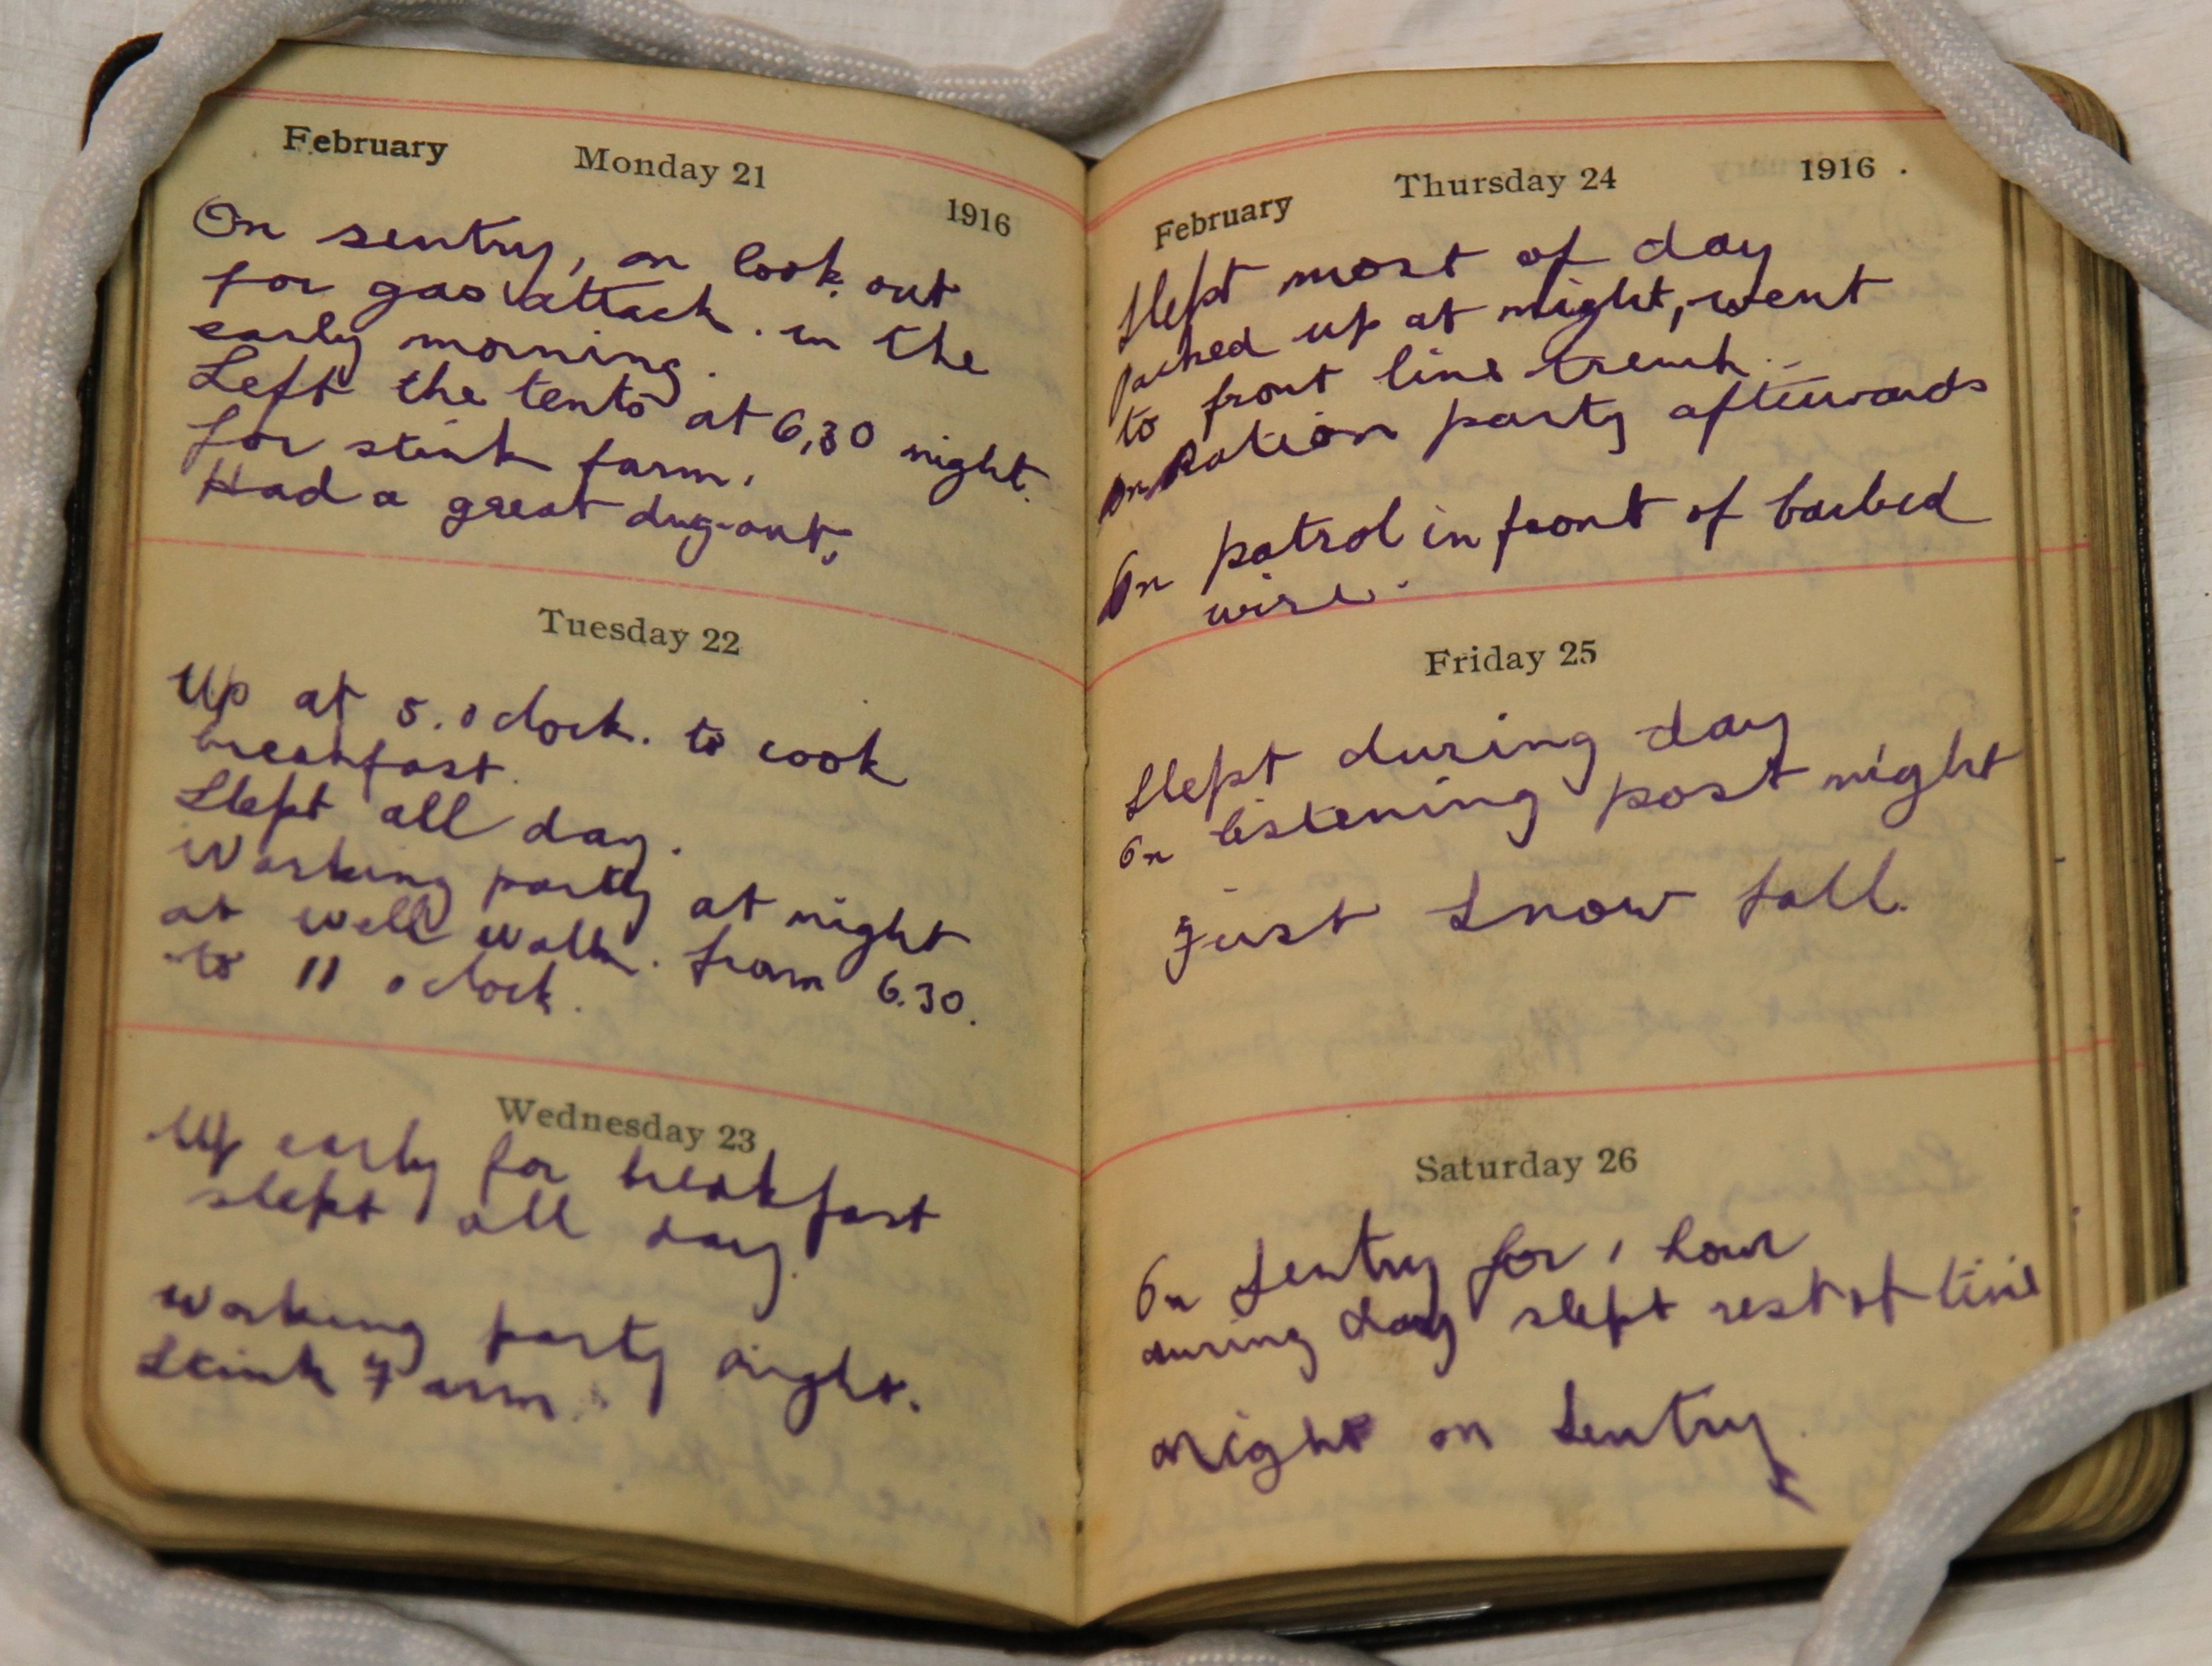 February Monday 21 1916
On sentry, on look out
for gas attack. in the
early morning.
Left the tents at 6,30 night.
for stink farm.
Had a great dug-out,
Tuesday 22
Up at 5.oclock. to cook
breakfast.
Slept all day.
Working party at night
at well walk. from 6.30.
to 11 oclock.
Wednesday 23
Up early for breakfast
slept all day.
working party night.
Stink Farm.
February Thursday 24 1916
Slept most of day
packed up at night, went
to front line trench.
on Ration party afterwards
On patrol in front of barbed
wire.
Friday 25
Slept during day
On listening post night
Just Snow fall.
Saturday 26
On Sentry for 1 hour
during day slept rest of time
Night on Sentry